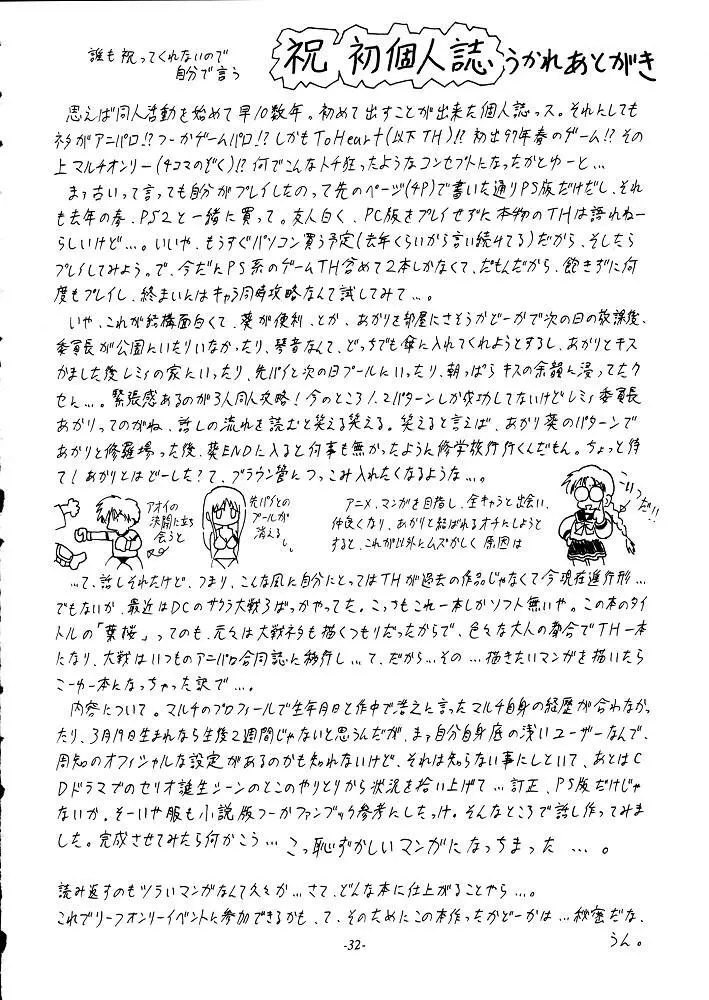 誰も祝ってくれないので
自分で言う
祝 初個人誌 うかれあとがき
思えば同人活動を始めて早10数年。初めて出すことが出来た個人誌っス。それにしても
ネタがアニパロ!?つーかゲームパロ!?しかもToHeart(以下TH)!?初出97年春のゲーム!?その
上マルチオンリー(4コマのぞく)!?何でこんなトチ狂ったようなコンセプトになったかとゆーと…
まぁ古いって言っても自分がプレイしたのって先のページ(4P)で書いた通りPS版だけだし、それ
も去年の春、PS2と一緒に買って。友人曰く、PC版をプレイせずに本物のTHは語れねー
らしいけど…。いいや、もうすぐパソコン買う予定(去年くらいから言い続けてる)だから、そしたら
プレイしてみよう。で、今だにPS系のゲームTH含めて2本しかなくて、だもんだから、飽きずに何
度もプレイし、終まいにはキャラ同時攻略なんて試してみて…。
いや、これが結構面白くて、葵が便利、とか、あかりを部屋にさそうかどーかで次の日の放課後、
委員長が公園にいたりいなかったり、琴音なんて、どっちでも傘に入れてくれようとするし、あかりとキス
かました後レミィの家にいったり、先パイと次の日プールにいったり、朝っぱらキスの余韻に浸ってたク
セに…。緊張感あるのが3人同人攻略!今のところ1、2パターンしか成功してないけどレミィ委員長
あかりってのがね、話しの流れを読むと笑える笑える。笑えると言えば、あかり葵のパターンで
あかりと修羅場った後、葵ENDに入ると何事も無かったように修学旅行行くんだもん。ちょっと待
て!あかりとはどーした?て、ブラウン管につっこみ入れたくなるような…。
アオイの
決闘に立ち
会うと
先パイとの
プールが
消えるし。
アニメ、マンガを目指し、全キャラと出会い、
仲良くなり、あかりと結ばれるオチにしようと
すると、これが以外にムズかしく原因は
だ!!
…て、話しそれたけど、つまり、こんな風に自分にとってはTHが過去の作品じゃなくて今現在進行形…
でもないか、最近はDCのサクラ大戦3ばっかやってた。こっちもこれ一本しかソフト無いや。この本のタイ
トルの「葉桜」ってのも、元々は大戦ネタも描くつもりだったからで、色々な大人の都合でTH一本
になり、大戦はいつものアニパロ合同誌に移行し…て、だから…その…描きたいマンガを描いたら
こーゆー本になっちゃった訳で…。
内容について。マルチのプロフィールで生年月日と作中で浩之に言ったマルチ自身の経歴が合わなか
ったり、3月19日生まれなら生後2週間じゃないと思うんだが、まぁ自分自身底の浅いユーザーなんで、
周知のオフィシャルな設定があるのかも知れないけど、それは知らない事にしといて、あとはC
Dドラマでのセリオ誕生シーンのとこのやりとりから状況を拾い上げて…訂正、PS版だけじゃ
ないか。そーいや服も小説版つーかファンブック参考にしたっけ。そんなところで話し作ってみま
した。完成させてみたら何かこう…こっ恥ずかしいマンガになっちまった…。
読み返すのもツラいマンガなんて久々か…さて、どんな本に仕上がることやら…。
これでリーフオンリーイベントに参加できるかも、て、そのためにこの本作ったかどーかは…秘密だな、
うん。
-32-